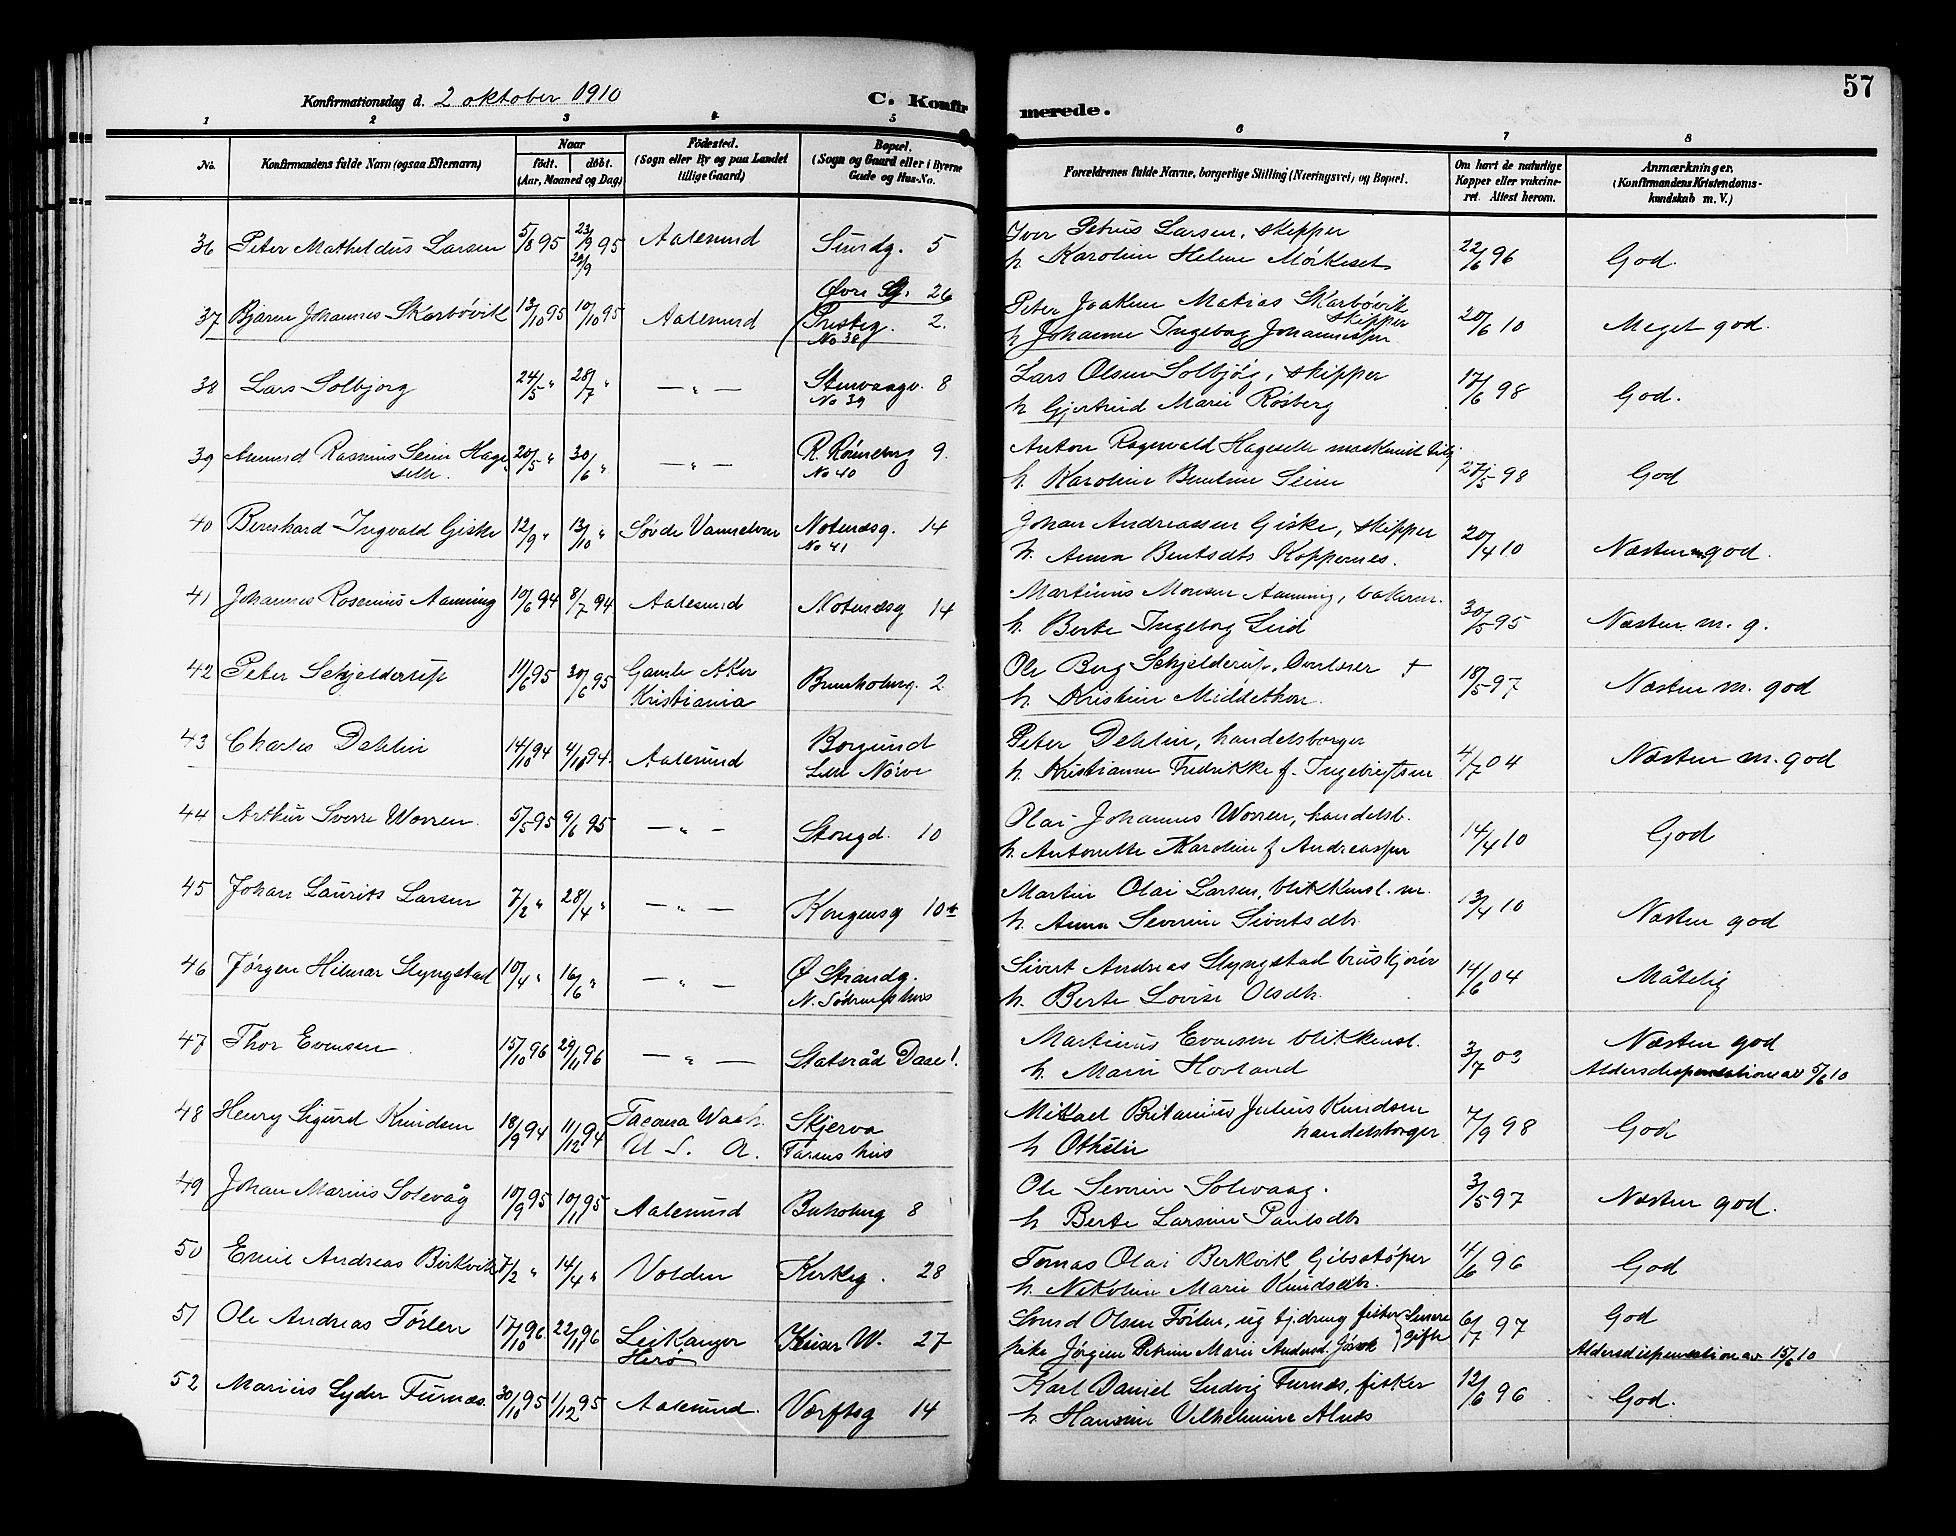 57
Konfirmationsdag d. 2 oktober 1910
C. Konfirmerede.
1 2 3 4 5 6 7 8
No. Konfirmandens fulde Navn (ogsaa Efternavn) Naar født. døbt. (Aar, Maaned og Dag) Fødested. (Sogn eller By og paa Landet tillige Gaard) Bopæl. (Sogn og Gaard eller i Byerne Gade og Hus-No. Forældrenes fulde Navne, borgerlige Stilling (Næringsvei) og Bopæl. Om havt de naturlige Kopper eller vakcineret. Attest herom. Anmærkninger. (Konfirmandens Kristendomskundskab m. V.)
36 Peter Matheldus Larsen 5/8 95 23/9 95 29/9 Aalesund Sundg. 5 Iver Petrus Larsen, skipper
h Karoline Helene Mørkeset 22/6 96 God.
Øvre 26
37 Bjarne Johannes Skarbøvik 13/10 95 10/10 95 Aalesund Presteg. 2. Peter Joakim Matias Skarbøvik skipper
No 38 h Johanne Ingeborg Johannesdr 20/6 10 Meget god.
38 Lars Solbjørg 24/5 " 28/7 " — " — 8 Lars Olsen Solbjørg, skipper
No 39 h Gjertrud Marie Røsberg 17/6 98 God.
39 Amund Rasmus Seim Hageselle. 20/5 " 30/6 " — " — R. Rønneberg 9. Anton Ragnvald Hageselle
No 40 h. Karoline Bentine Seim 27/5 98 God
40 Bernhard Ingvald Giske 12/9 " 13/10 " Søvde Vannelven Notenæsg. 14 Johan Andreassen Giske, skipper
No 41 h. Anna Bentsdtr Koppernes. 20/4 10 Næsten m god.
41 Johannes Rosenius Aanning 10/6 94 8/7 94 Aalesund Notenæsg 14 Martinus Monsen Aanning, bakerm.
h. Berte Ingeborg Leid 30/5 95 Næsten m. g.
42 Peter Schjelderup 11/6 95 30/6 95 Gamle Aker Kristiania Bruholmg. 2 Ole Berg Schjelderup, †
h. Kristine Middelthon. 18/5 97 Næsten m. god
43 Charles Dehlin 14/10 94 4/10 94. Aalesund Borgund Lille Nørve Peter Dehlin, handelsborger
h. Kristianne Fredrikke f. Ingebrigtsen 4/7 04 Næsten m. god
44 Arthur Sverre Worren. 5/5 95 9/6 95 — " — Storgd. 10 Olai Johannes Worren, handelsb.
h. Antonette Karoline f. Andreasdr 14/4 10 God
45 Johan Laurits Larsen 7/2 " 28/4 " — " — Kongensg 10 Martin Olai Larsen, blikkensl. m.
h. Anna Severine Sivertsdtr 13/4 10 Næsten god
46 Jørgen Hilmar Slyngstad 10/4 " 16/6 " — " — Ø Strandg. Sivert Andreas Slyngstad buskjører
h. Berte Lovise Olsdtr. 14/6 04 Måtelig
47 Thor Evensen 15/10 96 29/11 96 — " — Statsråd Daae! Martinus Evensen blikkensl.
h. Marie Hovland 3/7 03 Næsten god
Aldersdispensation av 5/6 10
48 Henry Sigurd Knudsen 18/9 94 11/12 94 Tacoma Wash. U. S. A. Skjerva hus Mikael Britanius Julius Knudsen handelsborger
h Othelie 7/9 98 God
49 Johan Marius Solevåg 10/9 95 10/11 95 Aalesund Buholmg 8 Ole Severin Solevaag.
h Berte Larsine Paulsdtr 3/5 97 Næsten god.
50 Emil Andreas Birkvik 7/2 " 14/4 " Volden Kirkeg. 28 Tomas Olai Berkvik Gibsstøper
h. Nikoline Marie Knudsdtr. 4/6 96 God
51 Ole Andreas Førlen 17/10 96 22/11 96 Leikanger Herø Keiser W. 27 Olsen Førlen, ug fisker senere gifte
pike Jørgine Petrine Marie 6/7 97 God
Aldersdispensation av 15/6 10
52 Marius Lyder Furnæs. 30/10 95 1/12 95 Aalesund. Værftsg 14 Karl Daniel Ludvig Furnæs, fisker
h Hansine Vilhelmine Alnes 12/6 96 God.